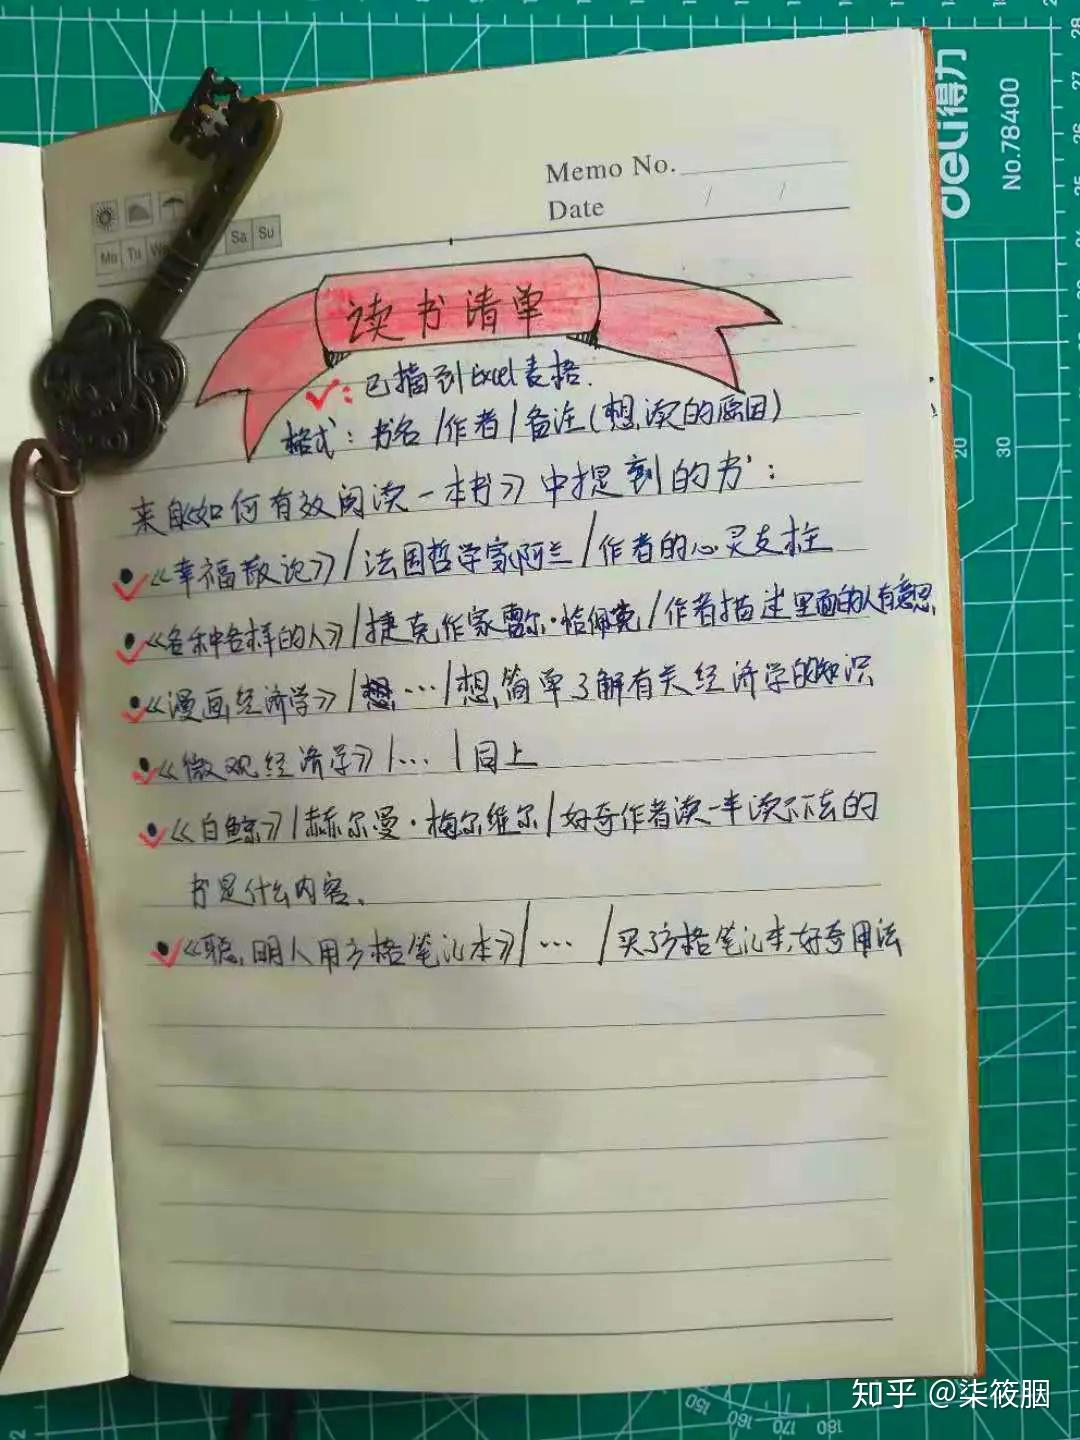 Memo No.
Date / /
Mo Tu We Sa Su
读书清单
✓：已搞到Excel表格.
格式：书名/作者/备注(想读的原因)
来自《如何有效阅读一本书》中提到的书：
《幸福散论》/法国哲学家阿兰/作者的心灵支柱
《各种各样的人》/捷克作家雷尔·恰佩克/作者描述里面的人有意思
《漫画经济学》/…/想简单了解有关经济学的知识
《微观经济学》/…/同上
《白鲸》/赫尔曼·梅尔维尔/好奇作者读一半读不下去的
书是什么内容.
《聪明人用方格笔记本》/…/买了方格笔记本,好奇用法
deli得力
No.78400
28
27
26
25
20
30
150 160 170 180
知乎 @柒筱胭